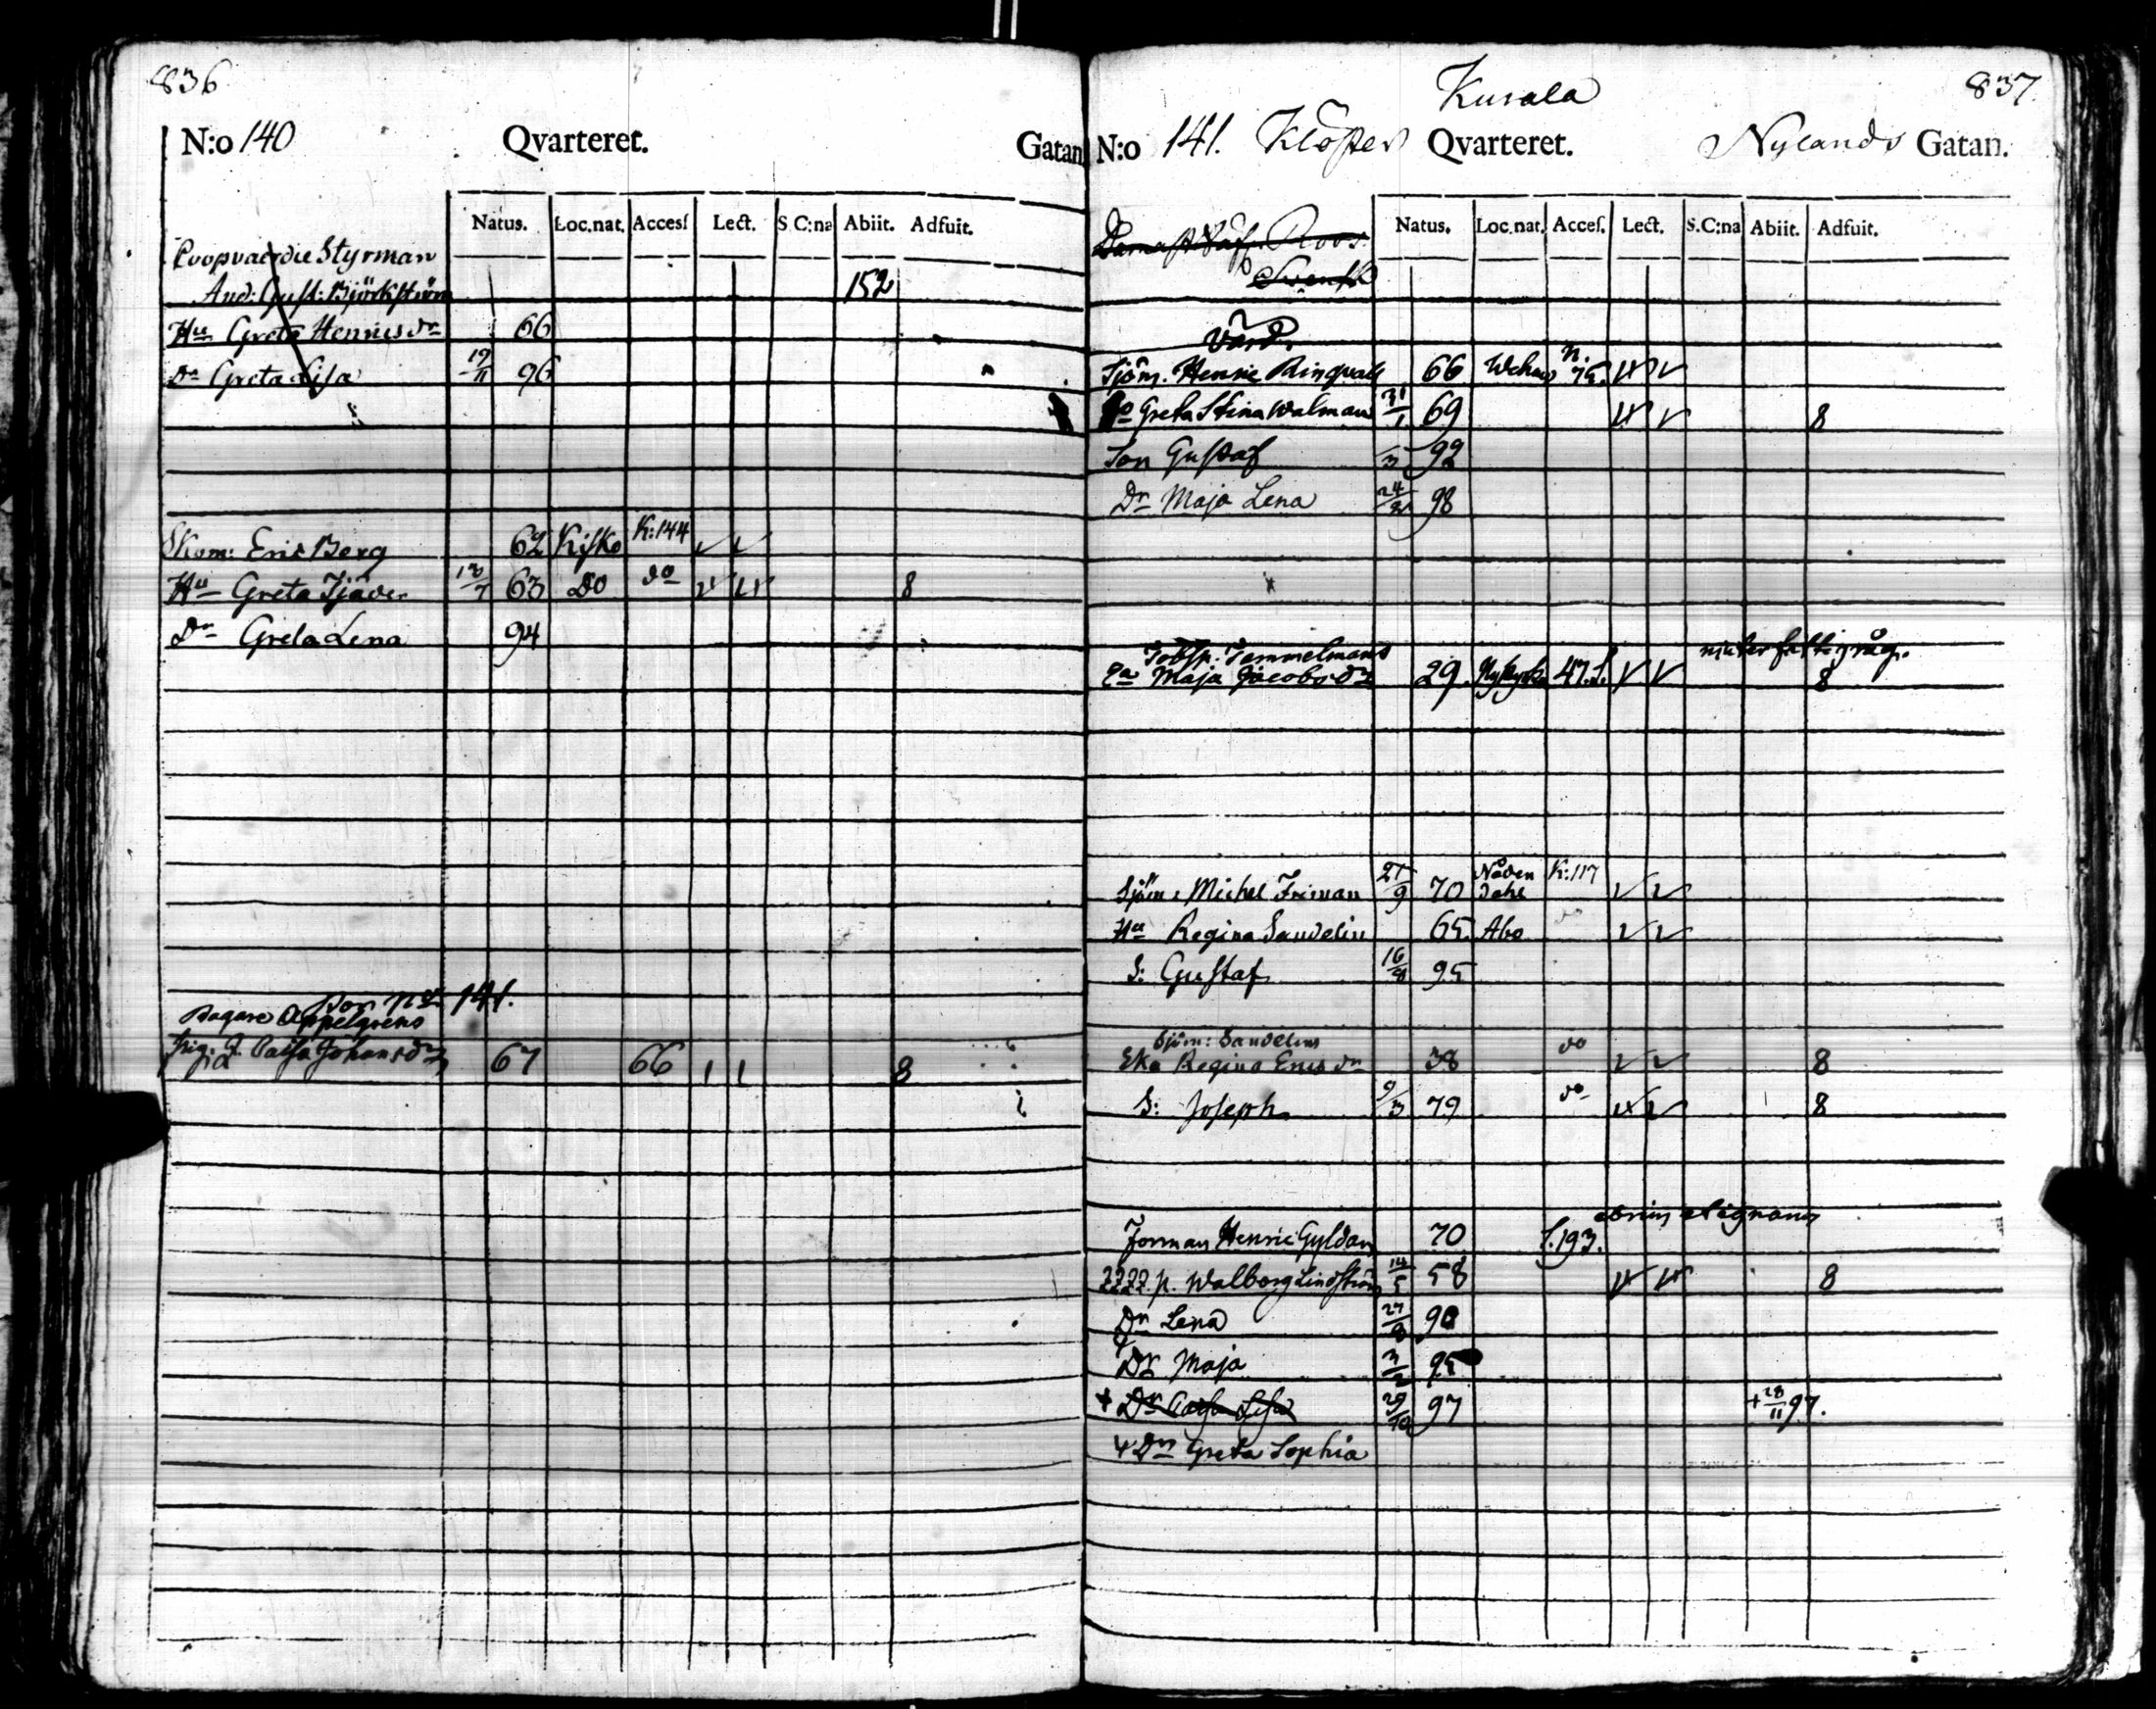 836
N:o 140 Qvarteret. Gatan
Natus. Loc.nat. Accesſ Lect. S C:na Abiit. Adfuit.
Coopvaerdie Styrman
And: Gust: Björkström 152
Hu Greta Henricsdr 66
Dr Greta Lisa 19/11 96
Skom: Eric Berg 62 Kisko K:144
Hu Greta Tjäder 7 63 Do do 8
Dr Greta Lena 94
141.
Bagare Appelgrens
pig. Caisa Johansdr 67 66 8
837
Kurala
N:o 141. Kloster Qvarteret. Nylands Gatan.
Natus. Loc.nat. Acceſ. Lect. S.C:na Abiit. Adfuit.
Roos
Svensk
Vård.
Sjöm. Henric Ringvall 66 n. 75.
Greta Stina Walman 31/1 69 8
Son Gustaf 3 92
Dr Maja Lena 24 98
Timmelmans
Maja Jacobsdr 29. Nykyrko 47. 8
Sjöm: Michel Friman 27/9 70 Nåden dahl K:117
Hu Regina Sandelin 65. Abo
S: Gustaf 16 95
Sjöm: Sandelins
Eka Regina Ericsdr 38 do 8
S: Joseph 9/3 79 do 8
Forman Henric Gyldan 70 f.193.
Walborg Lindström 14/5 58 8
Dr Lena 27/8 90
Dr Maja 3/2 95
+ Dr Caisa Lisa 29/10 97 + 28/11 97.
Dr Greta Sophia